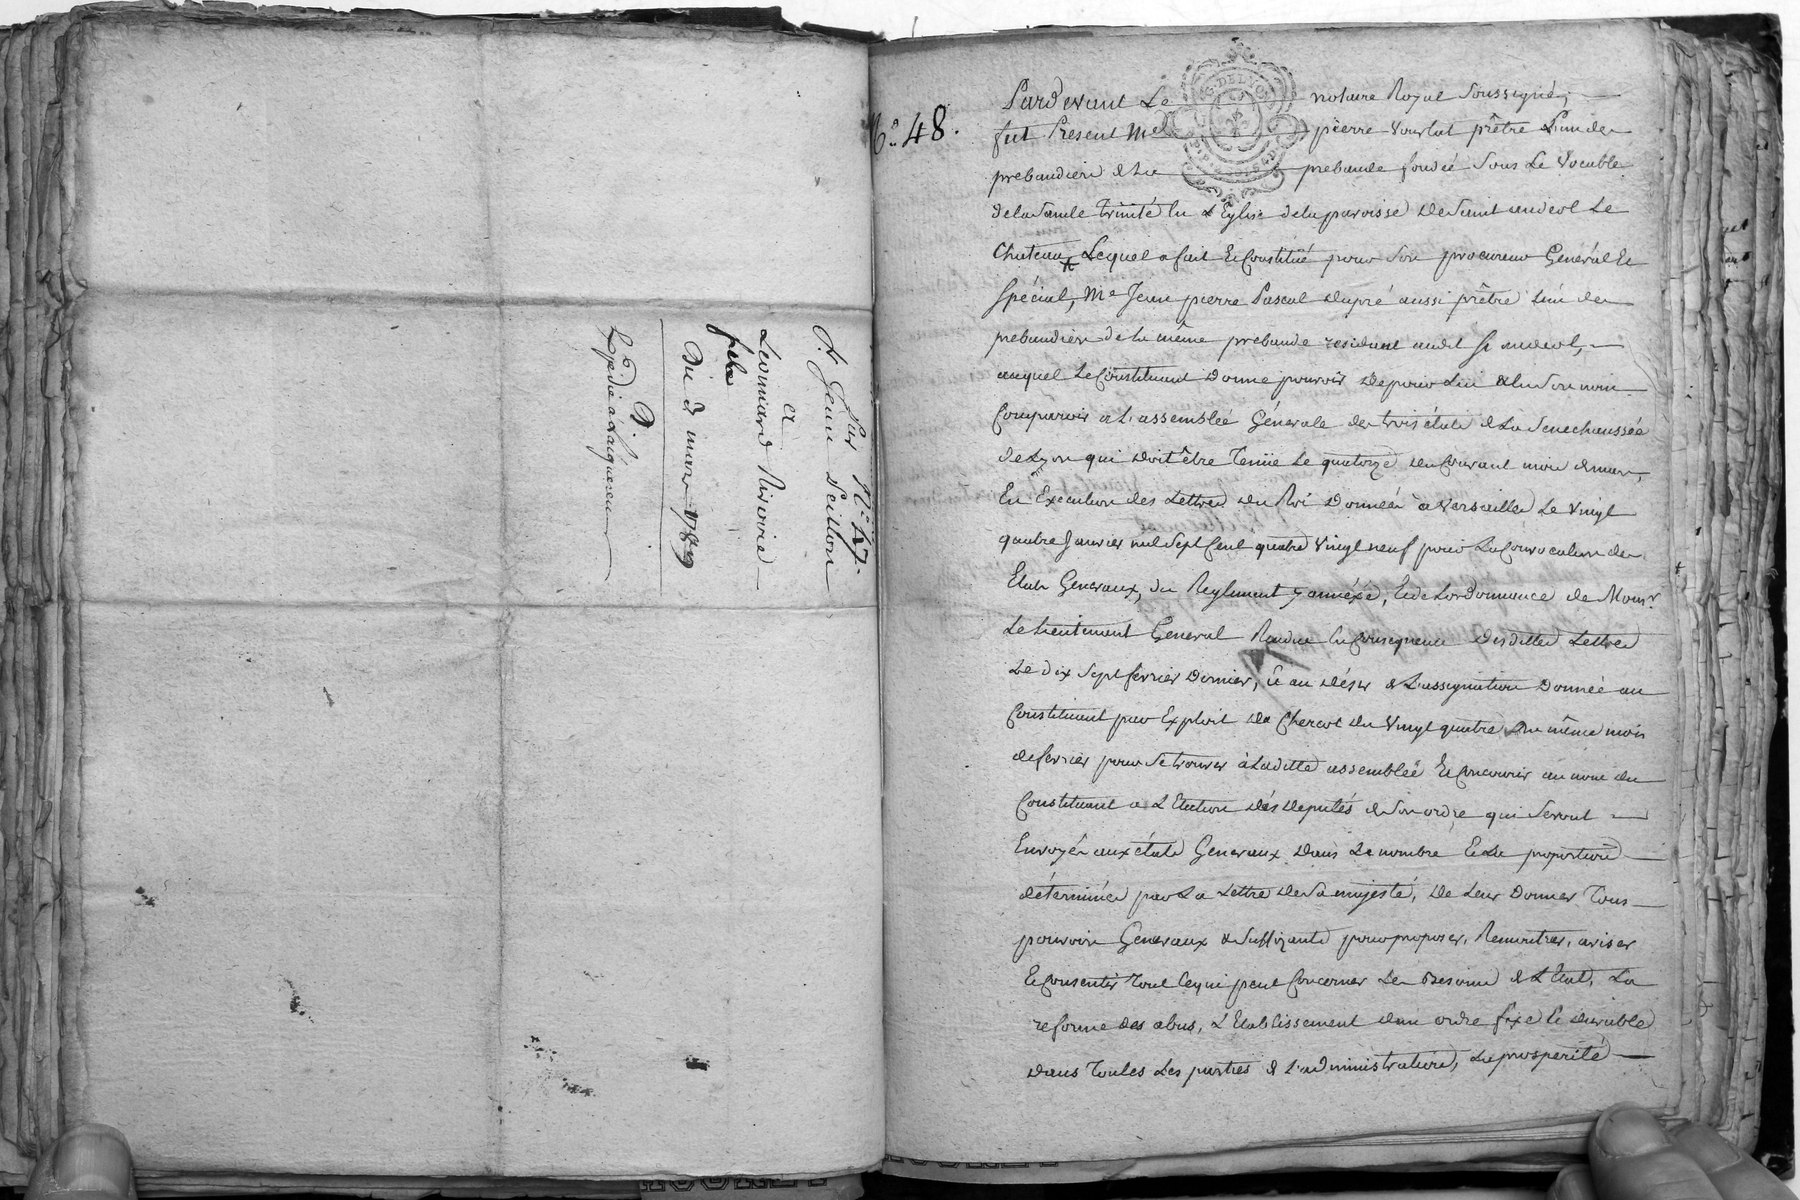 Sur N.° 47.
S. Jean Scillon
et
Leonard Rivoirie
fils
Du 8 mars 1789
D.
Exp.ée à Larigueur
N.° 48.
Pardevant Le notaire Royal Soussigné,
fut Present M.e pierre Vourlat prêtre L'un des
prebandiers de La prebande fondée Sous Le Vocable
de la Sainte Trinité En L'Eglise de la paroisse de Saint andeol Le
Chateau, Lequel a fait Et Constitué pour Son procureur Général Et
Spécial, M.e Jean pierre Pascal Dupré aussi prêtre L'un des
prebandiers de la même prebande residant audit St andeol,
auquel Le Constituant Donne pouvoir de pour Lui & En Son nom
Comparoir a L'assemblée Générale des trois états de La Senechaussée
de Lyon qui doit être Tenüe Le quatorze du Courant mois de mars,
En Execution des Lettres du Roi Données à Versailles Le Vingt
quatre Janvier mil Sept Cent quatre Vingt neuf pour La Convocation des
Etats Generaux, du Reglement y annéxé, Et de L'ordonnance de Monsr.
Le Lieutenant General Rendue En Consequence desdittes Lettres
Le dix Sept fevrier Dernier, Et au désir de L'assignation Donnée au
Constituant par Exploit de Chercot du Vingt quatre du même mois
de fevrier pour Se trouver à Laditte assemblée Et Concourir au nom du
Constituant a L'Election des Deputés de Son ordre qui Seront
Envoyés aux états Generaux dans Le nombre Et La proportion
déterminée par La Lettre de Sa majesté, De Leur Donner Tous
pouvoirs Generaux & Suffizants pour proposer, Remontrer, aviser
Et Consentir Tout Ce qui peut Concerner Les Besoins de L'Etat, La
reforme des abus, L'Etablissement d'un ordre fixe Et durable
dans Toutes Les parties de L'administration, La prosperité